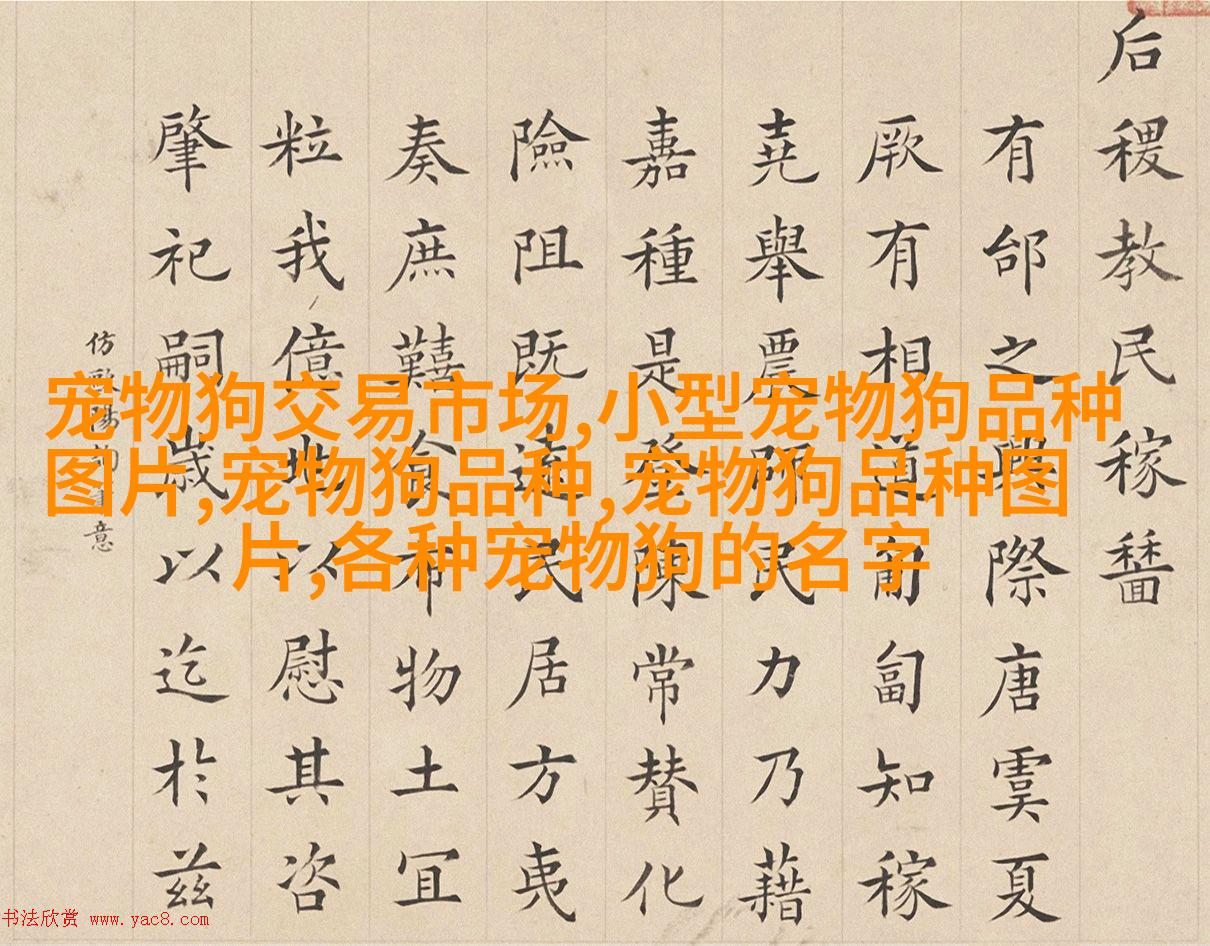 宠物狗交易市场,小型宠物狗品种
图片,宠物狗品种,宠物狗品种图
片,各种宠物狗的名字
后稷教民稼穡
有邰之興際唐虞夏
厥有相道匍匐知稼
堯舉農師民力乃藉
嘉種是登陳常賛化
險阻既遠民居方夷
奏庶囏食布物土冝
粒我億以慰其咨
肇祀嗣歲以迄於兹
仿歐陽意
书法欣赏 www.yac8.com